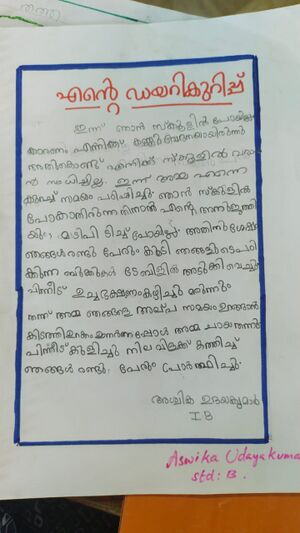 എന്റെ ഡയറികുറിപ്പ്
ഇന്ന് ഞാൻ സ്കൂളിൽ പോയില്ല
കാരണം എനിക്ക് കണ്ണുവേദനയായിരുന്നു
അതിനാൽ എനിക്ക് സ്കൂളിൽ വരാ
ൻ സാധിച്ചില്ല. ഇന്ന് അമ്മ എന്നെ
കുറച്ച് സമയം പഠിപ്പിച്ചു. ഞാൻ സ്കൂളിൽ
പോകാതിരുന്നതിനാൽ എന്റെ അനിജത്തി
യും മടി പിടിച്ച് പോയില്ല. അതിന് ശേഷം
ഞങ്ങൾ രണ്ടു പേരും കൂടി ഞങ്ങളുടെ പഠി
ക്കുന്ന ബുക്കുകൾ ടേബിളിൽ അടുക്കി വെച്ചു.
പിന്നീട് ഉച്ചഭക്ഷണം കഴിച്ചു മരുന്നും
തന്ന് അമ്മ ഞങ്ങളെ അല്പ സമയം ഉറങ്ങാൻ
കിടത്തി ഉറക്കം ഉണർന്നപ്പോൾ അമ്മ ചായ തന്നു
പിന്നീട് കുളിച്ചു നില വിളക്ക് കത്തിച്ച്
ഞങ്ങൾ രണ്ടു പേരും പ്രാർത്ഥിച്ചു.
അശ്വിക ഉദയകുമാർ
I B
Aswika Udayakuma
std: B.